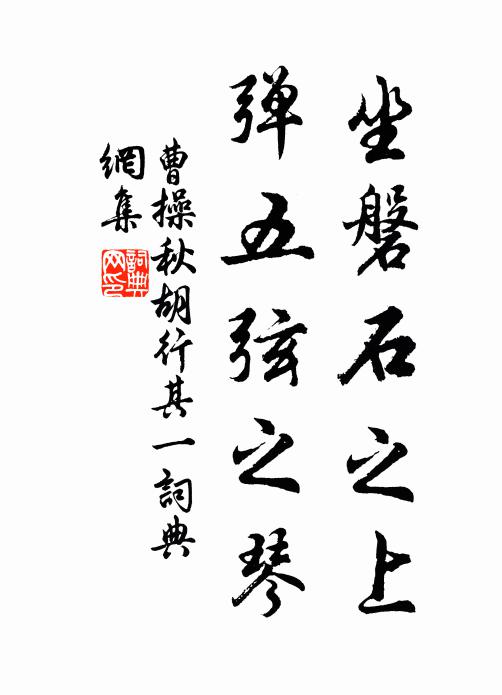 坐磐石之上
弹五弦之琴
曹操秋胡行其一詞典
網集
詞典
网印